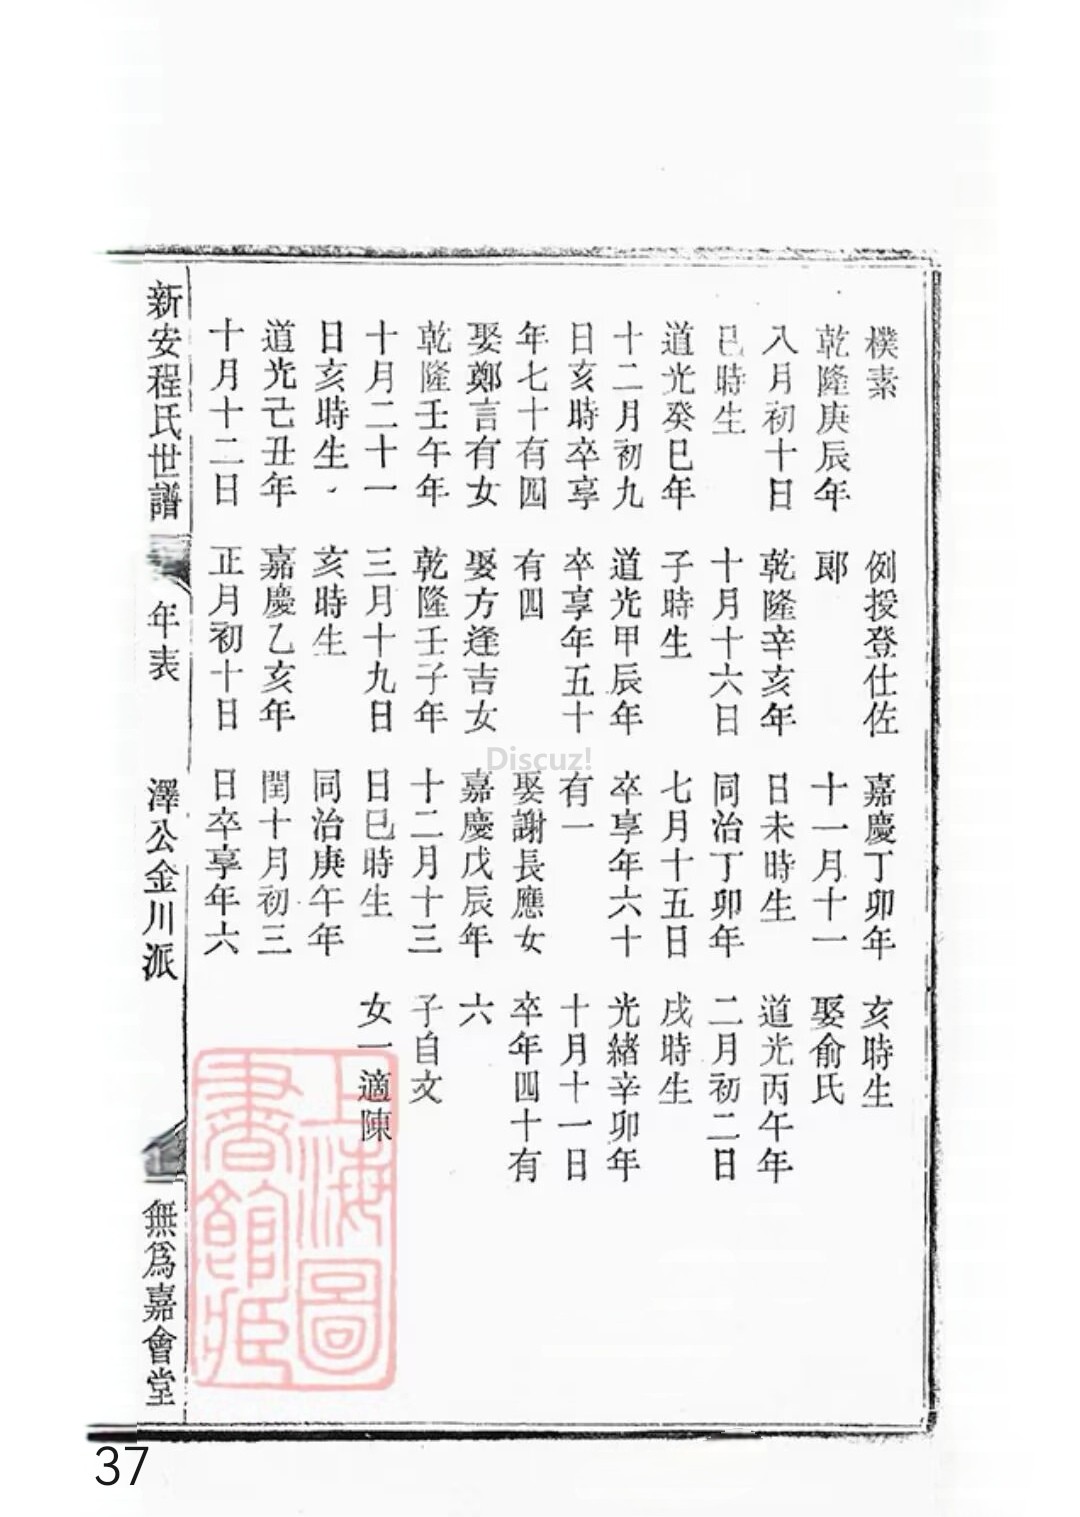 樸素
乾隆庚辰年
八月初十日
巳時生
道光癸巳年
十二月初九
日亥時卒享
年七十有四
娶鄭言有女
乾隆壬午年
十月二十一
日亥時生
道光己丑年
十月十二日
例授登仕佐
郎
乾隆辛亥年
十月十六日
子時生
道光甲辰年
卒享年五十
有四
娶方逢吉女
乾隆壬子年
三月十九日
亥時生
嘉慶乙亥年
正月初十日
嘉慶丁卯年
十一月十一
日未時生
同治丁卯年
七月十五日
卒享年六十
有一
娶謝長應女
嘉慶戊辰年
十二月十三
日巳時生
同治庚午年
閏十月初三
日卒享年六
亥時生
娶俞氏
道光丙午年
二月初二日
戌時生
光緒辛卯年
十月十一日
卒年四十有
六
子自文
女一適陳
新安程氏世譜
年表
澤公金川派
無為嘉會堂
上海圖
書館藏
Discuz!
37